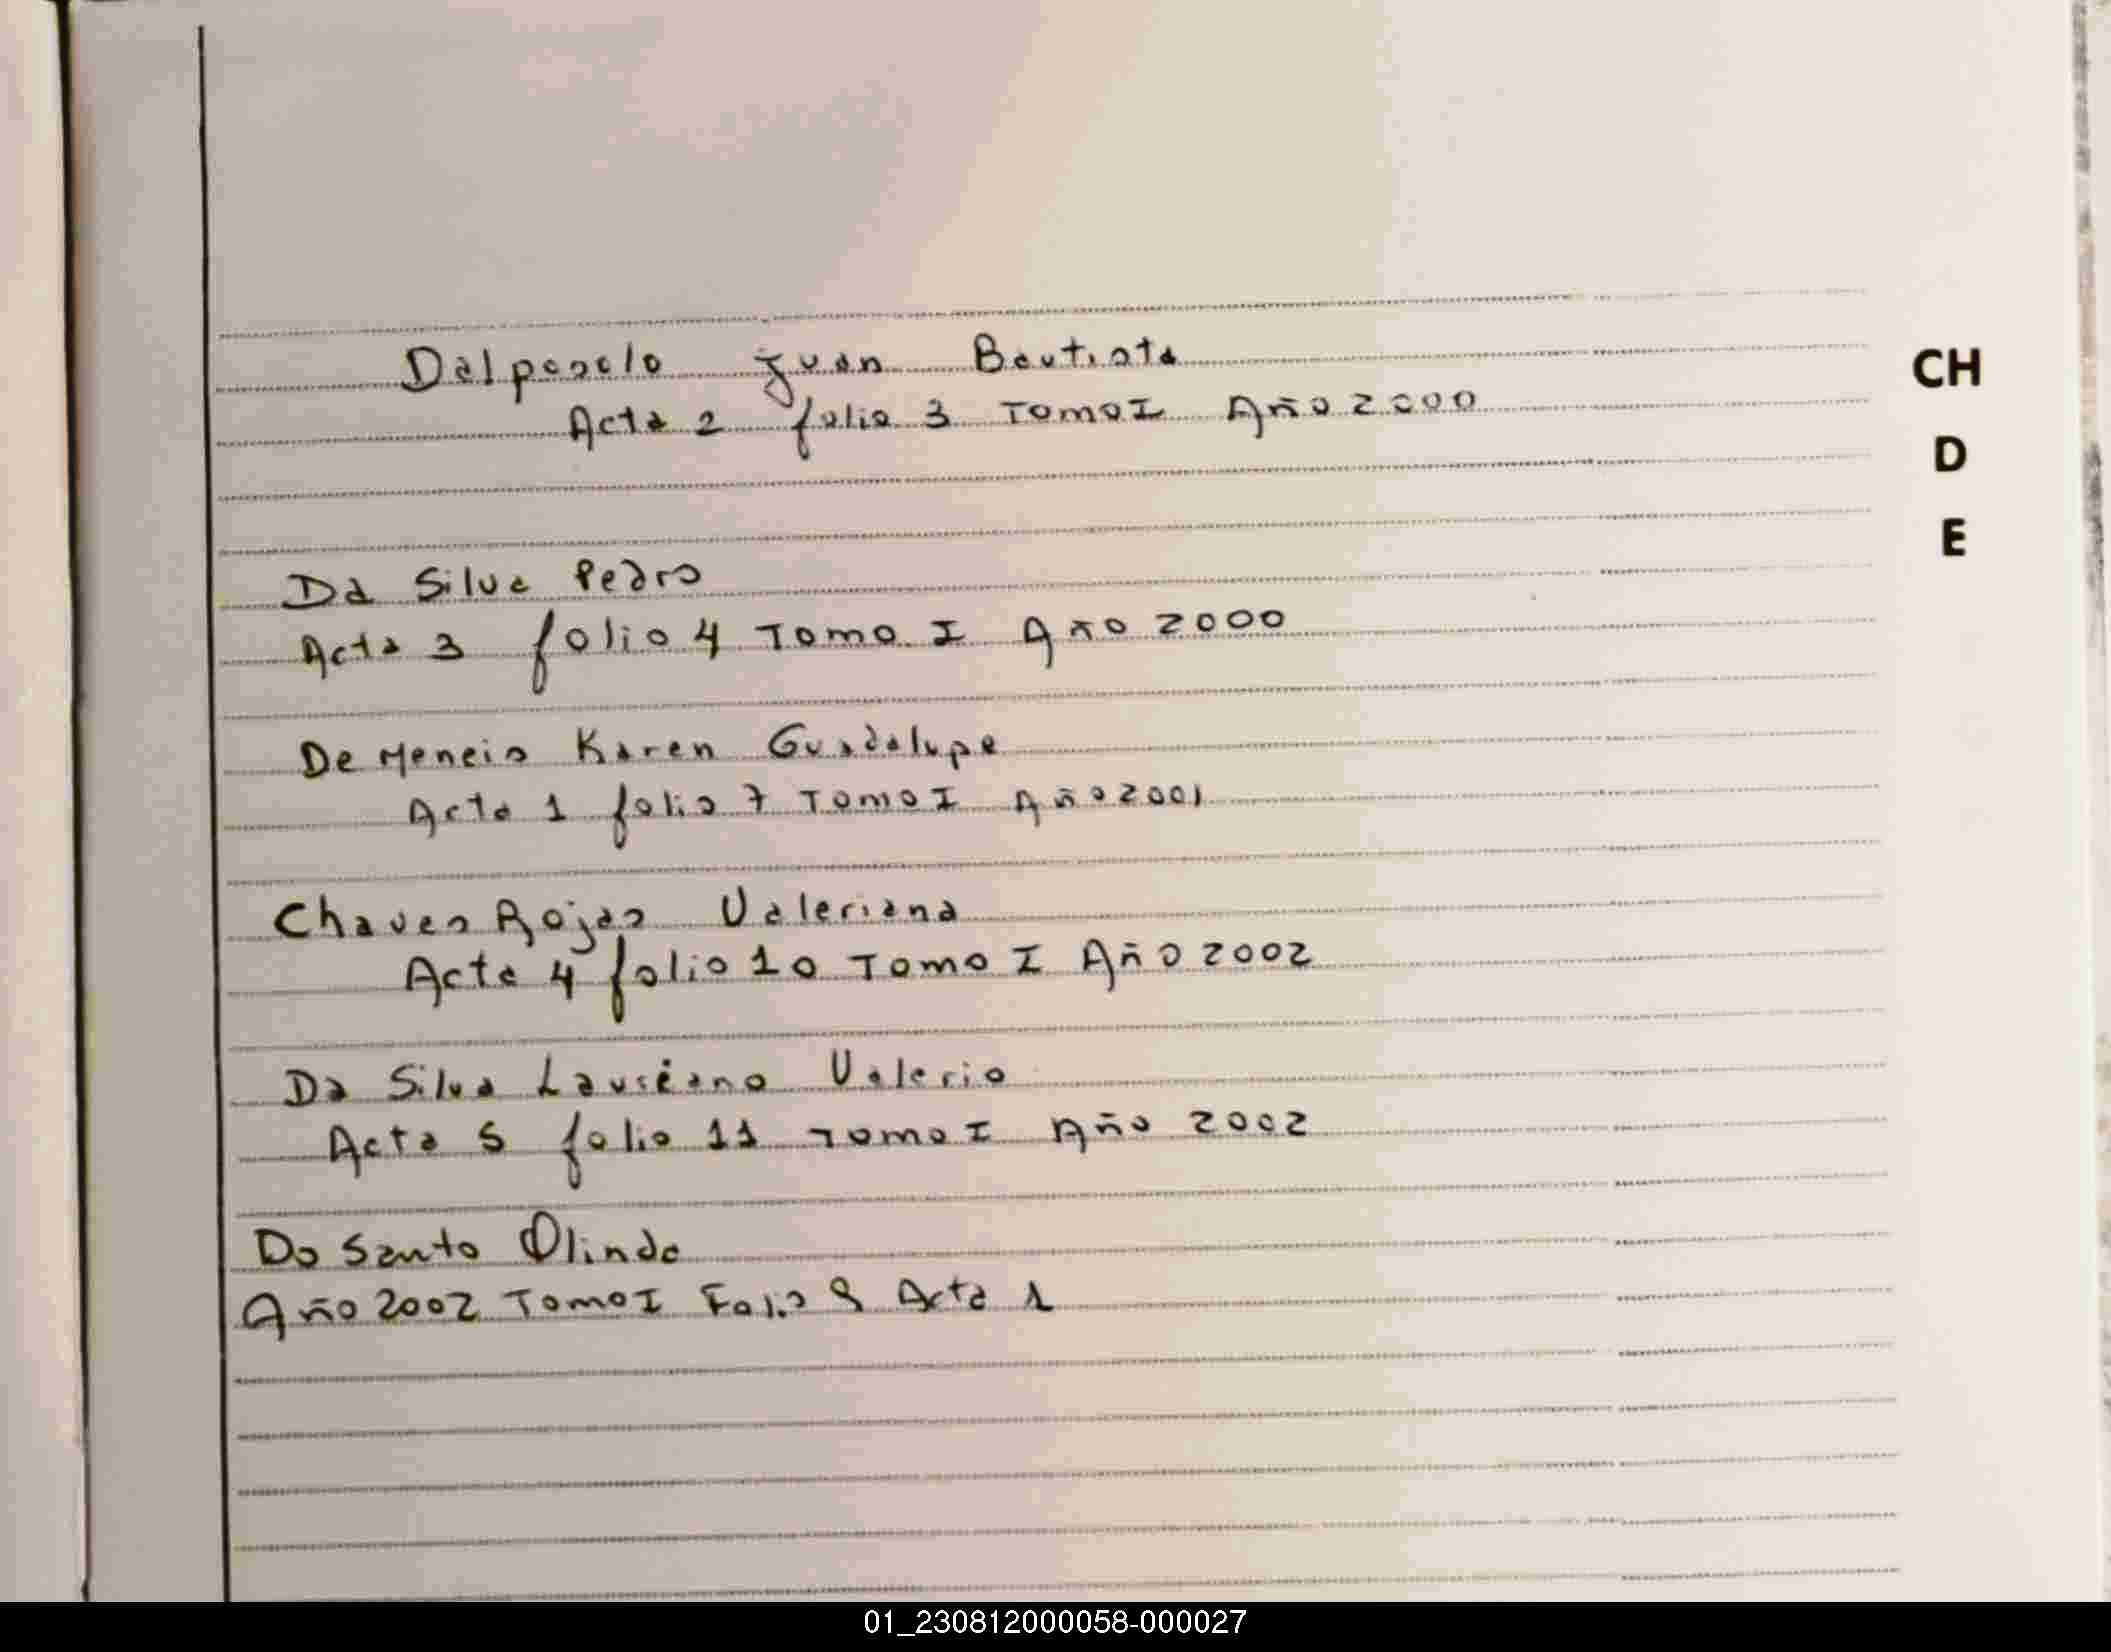 Dalposolo Juan Bautista
Acta 2 folio 3 Tomo I Año 2000
CH
D
E
Da Silva Pedro
Acta 3 folio 4 Tomo I Año 2000
De Meneis Karen Guadalupe
Acta 1 folio 7 Tomo I Año 2001
Chaves Rojas Valeriana
Acta 4 folio 10 Tomo I Año 2002
Da Silva Laureano Valerio
Acta 5 folio 11 Tomo I Año 2002
Do Santo Olinda
Año 2002 Tomo I Folio Acta 1
01_230812000058-000027